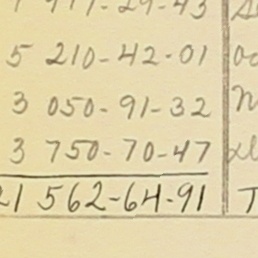 5 210-42-01
3 050-91-32
3 750-70-47
21 562-64-91 T